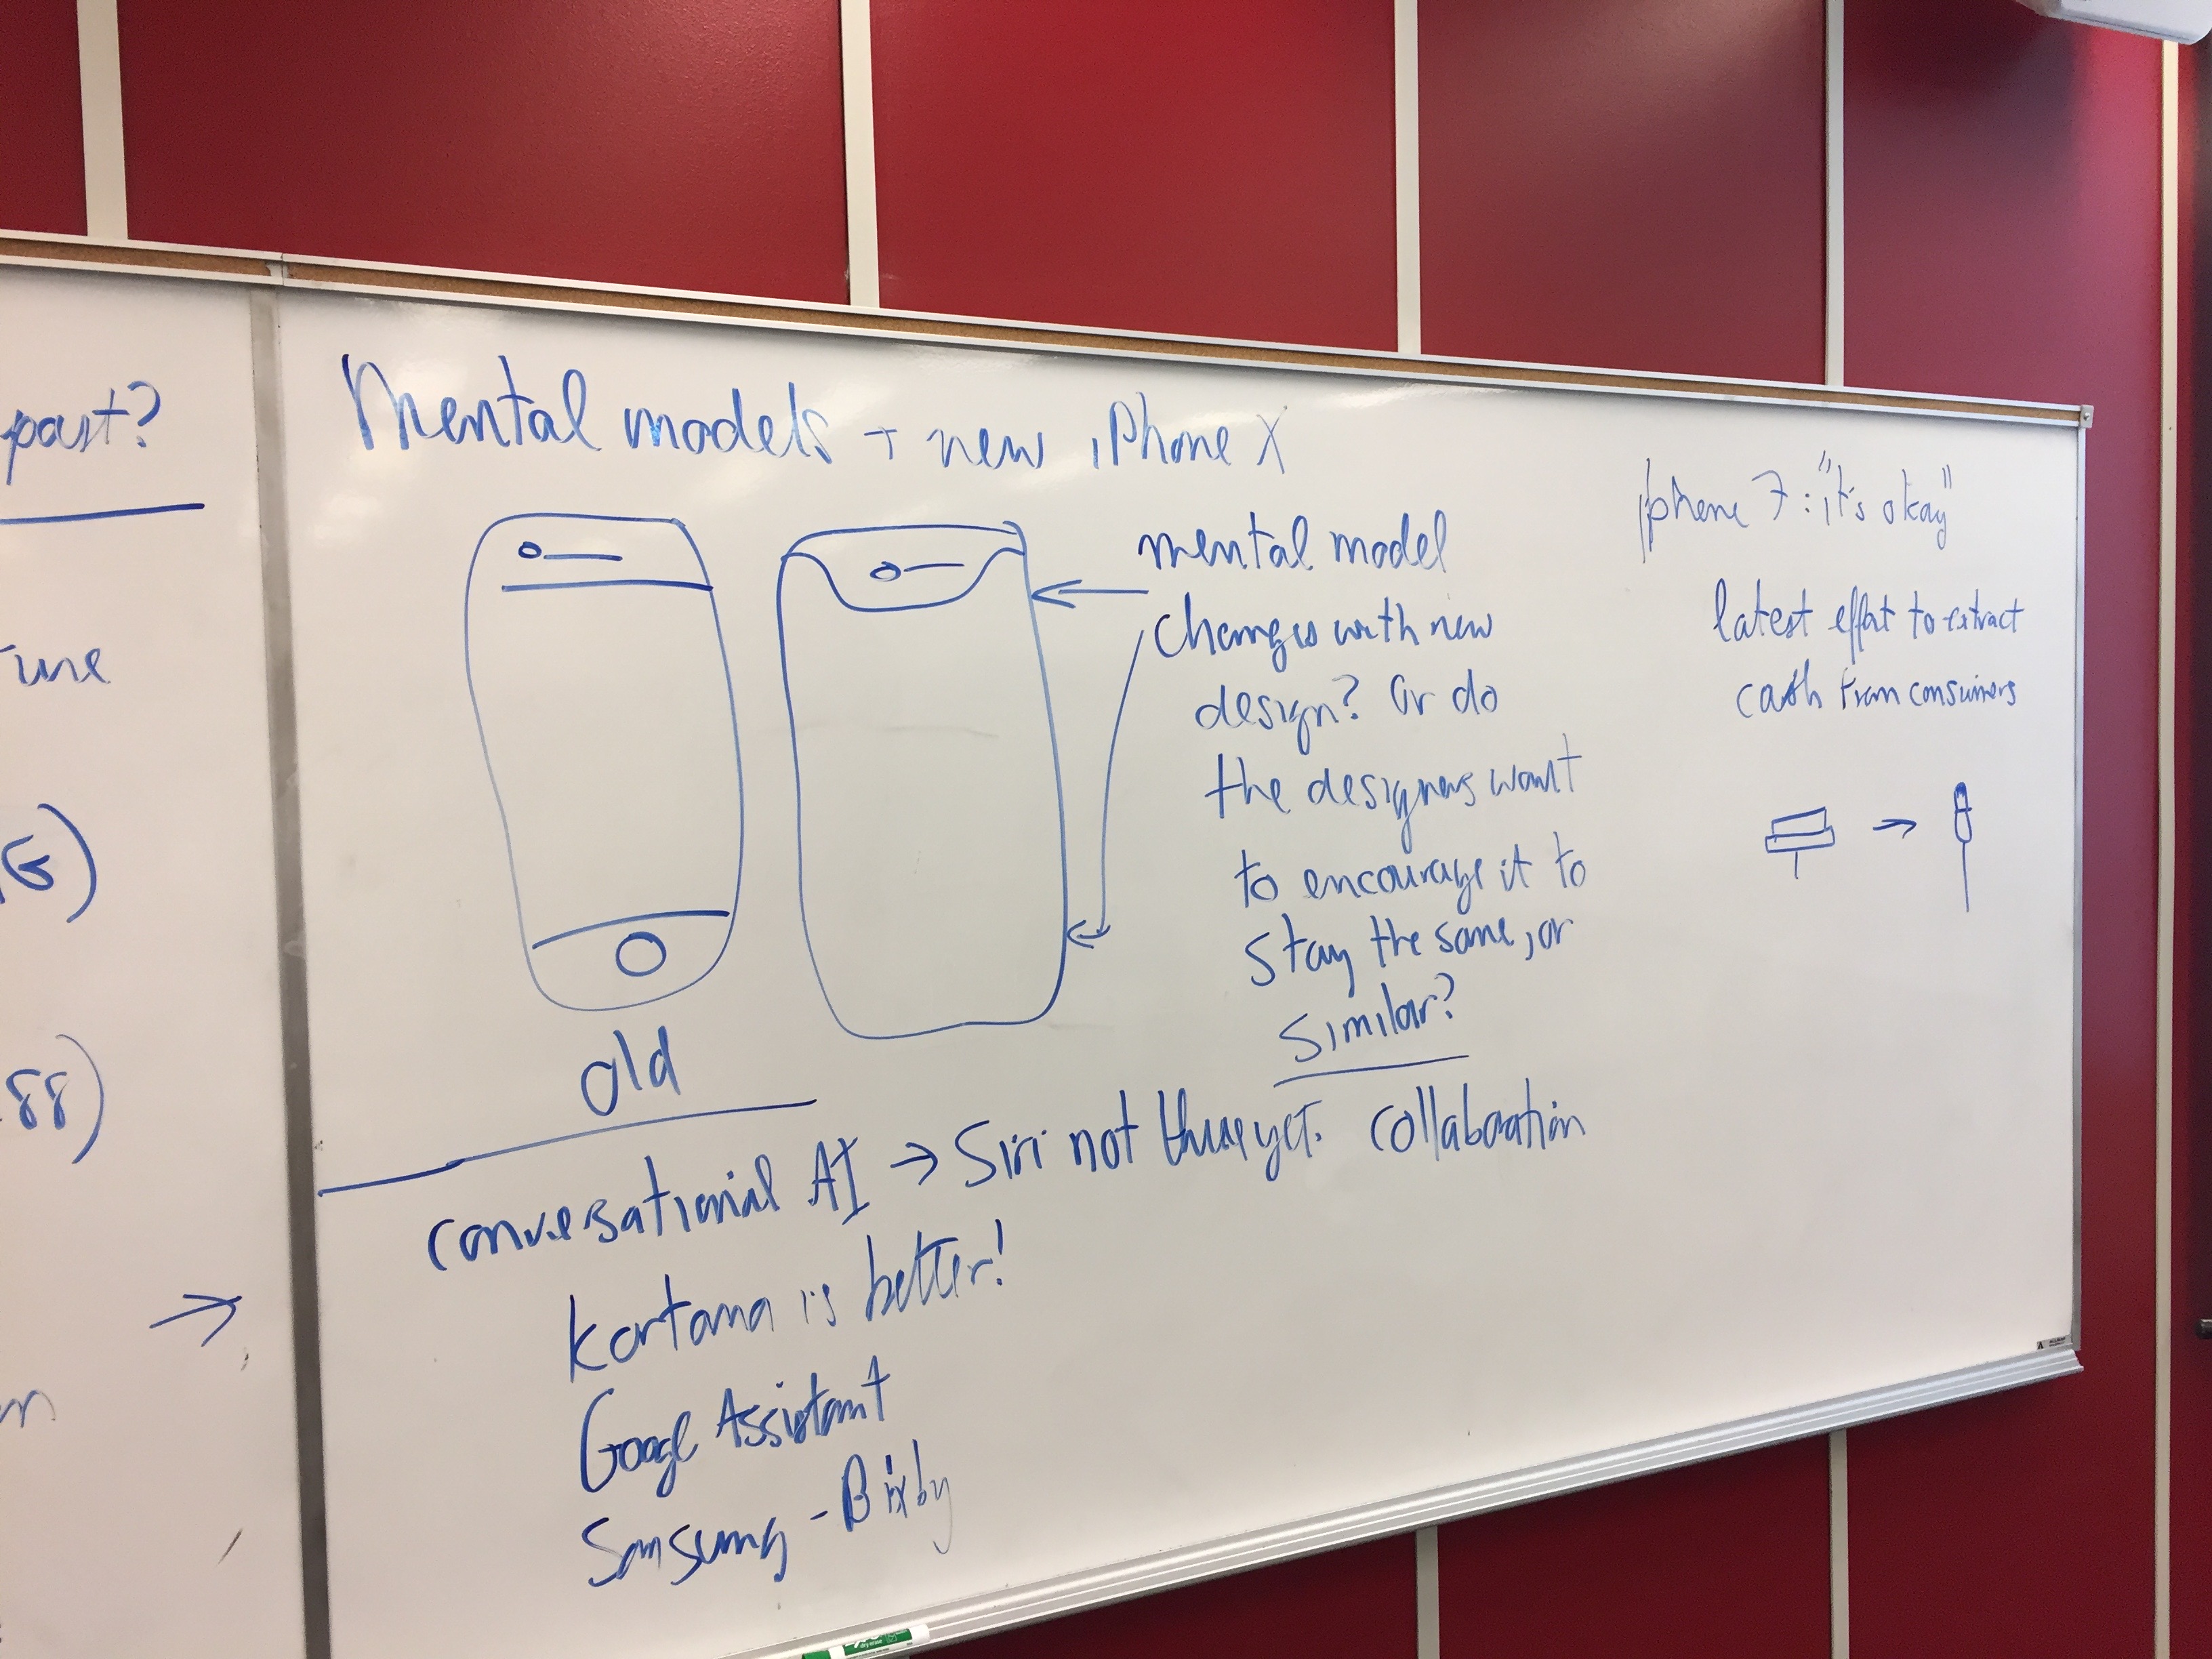 past?
G)
88)
Mental models + new iPhone X
old
mental model
changes with new
design? Or do
the designers want
to encourage it to
stay the same, or
similar?
iphone 7: "it's okay"
latest effort to extract
cash from consumers
conversational AI → Siri not there yet. collaboration
Kortana is better!
Google Assistant
Samsung - Bixby